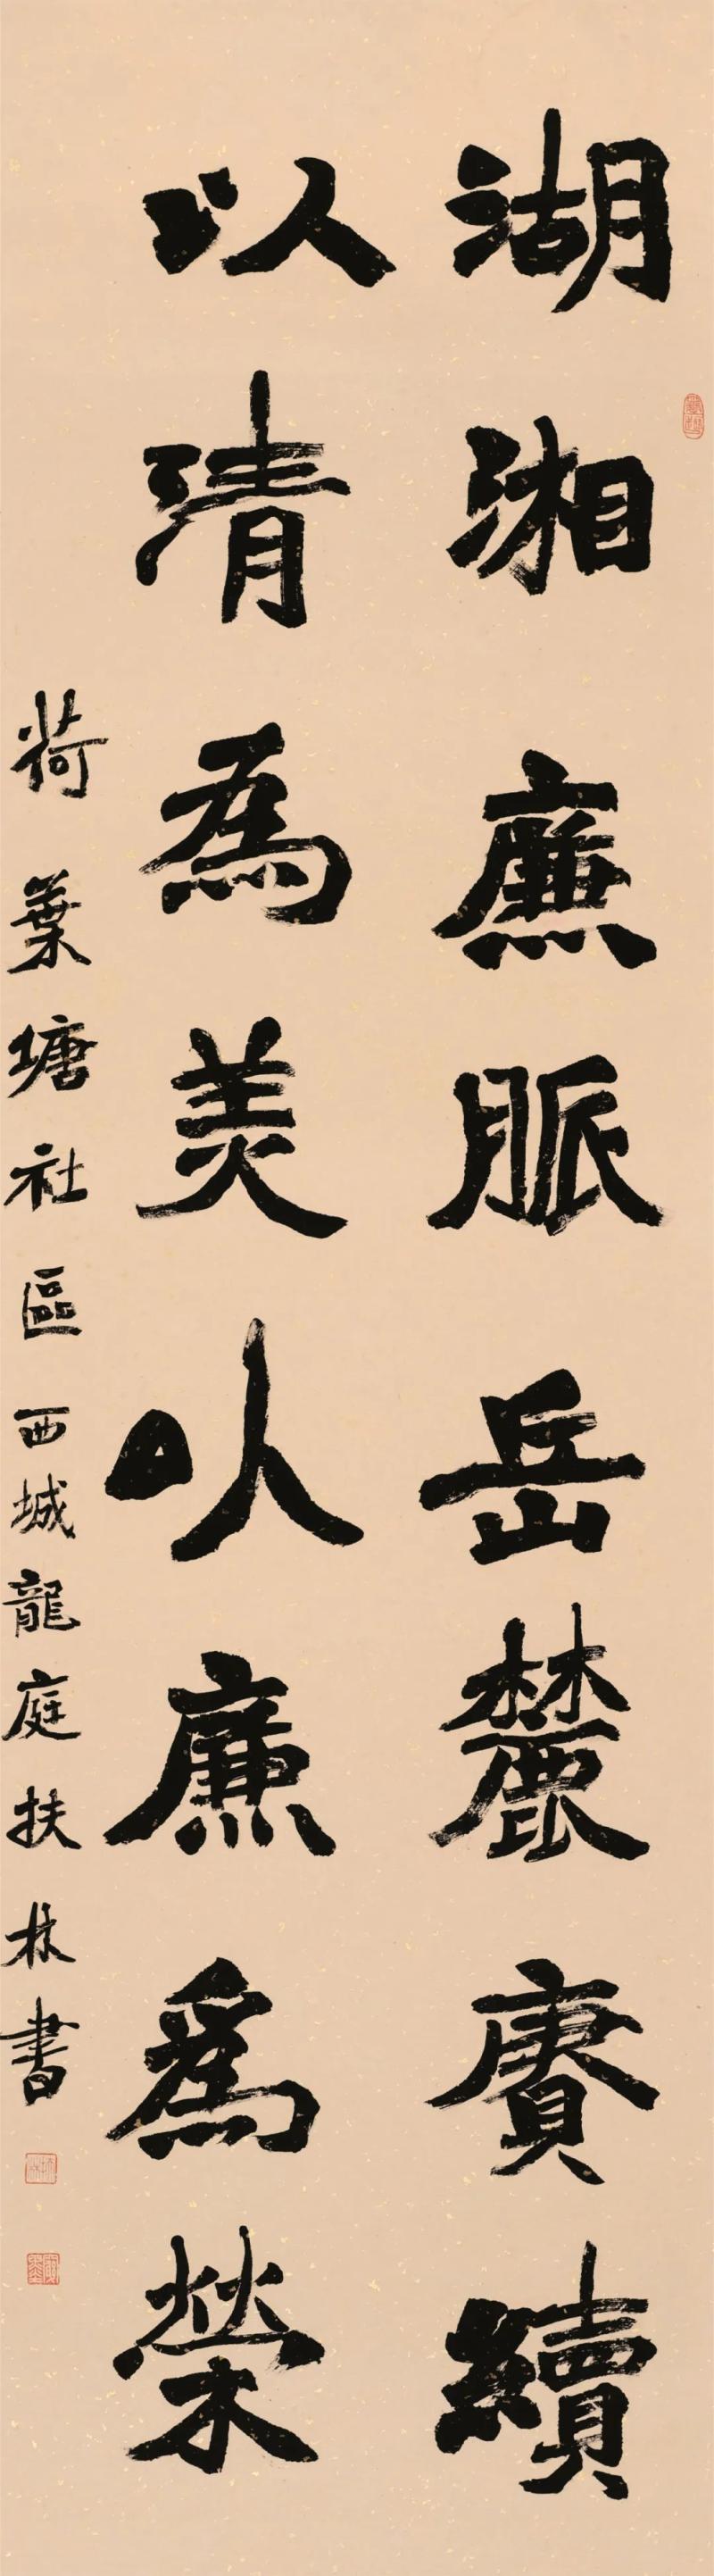 湖湘廉脈岳麓賡續
以清為美以廉為榮
荷葉塘社區西城龍庭扶林書